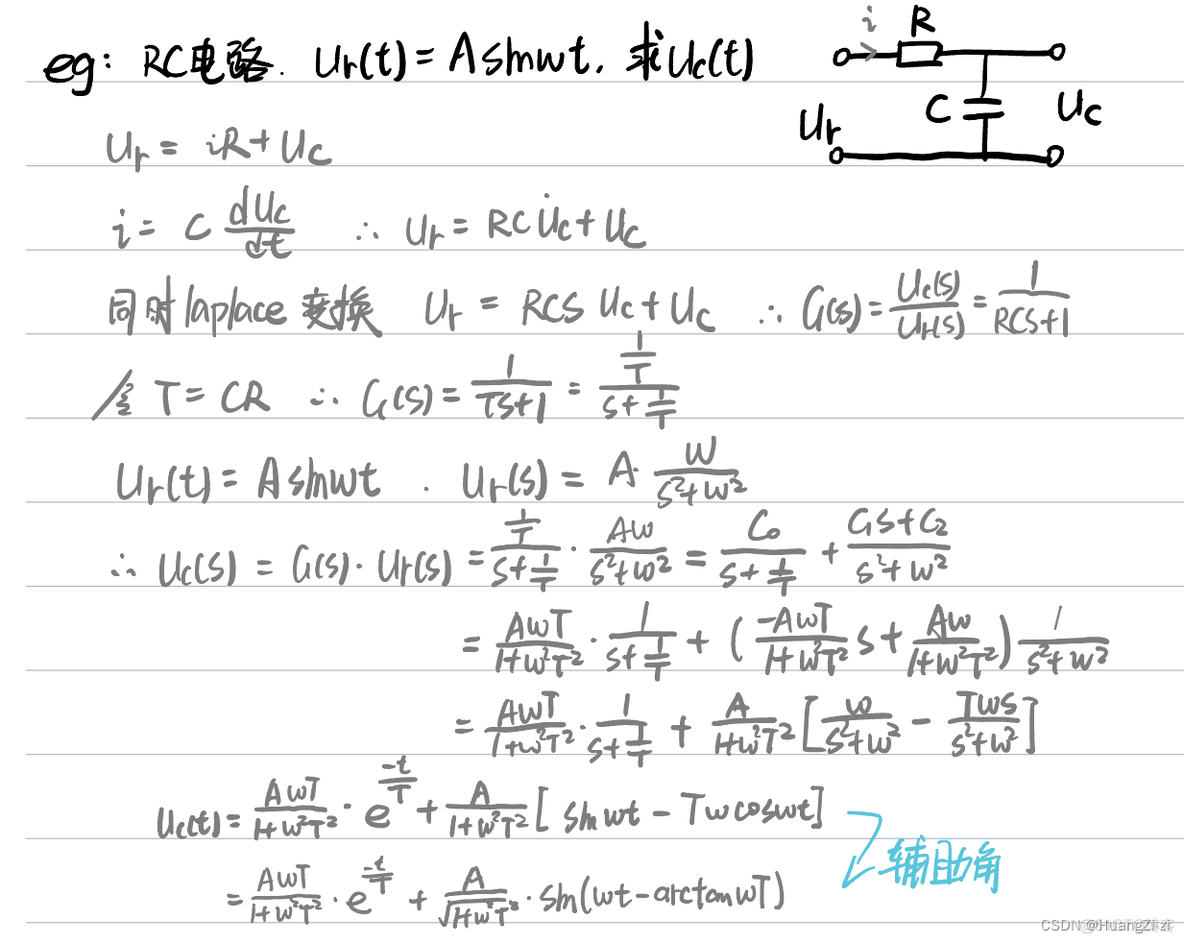 eg: RC电路. Ur(t)=Asinwt. 求Uc(t)
i R
C Uc
Ur
Ur = iR+Uc
i = C dUc/dt ∴ Ur = RCU̇c+Uc
同时laplace变换 Ur = RCS Uc+Uc ∴ G(s)=Uc(s)/Ur(s)=1/(RCS+1)
令 T=CR ∴ G(s)=1/(TS+1)=(1/T)/(S+1/T)
Ur(t)=Asinwt . Ur(s)=A·w/(s²+w²)
∴ Uc(s)=G(s)·Ur(s)=(1/T)/(S+1/T)·Aw/(s²+w²)=C₀/(S+1/T)+(C₁S+C₂)/(s²+w²)
=AwT/(1+w²T²)·1/(S+1/T)+(-AwT/(1+w²T²)S+Aw/(1+w²T²))1/(s²+w²)
=AwT/(1+w²T²)·1/(S+1/T)+A/(1+w²T²)[w/(s²+w²)-TWS/(s²+w²)]
Uc(t)=AwT/(1+w²T²)·e^(-t/T)+A/(1+w²T²)[sinwt-Twcoswt]
辅助角
=AwT/(1+w²T²)·e^(-t/T)+A/√(1+w²T²)·sin(wt-arctanwT)
CSDN @HuangZizi